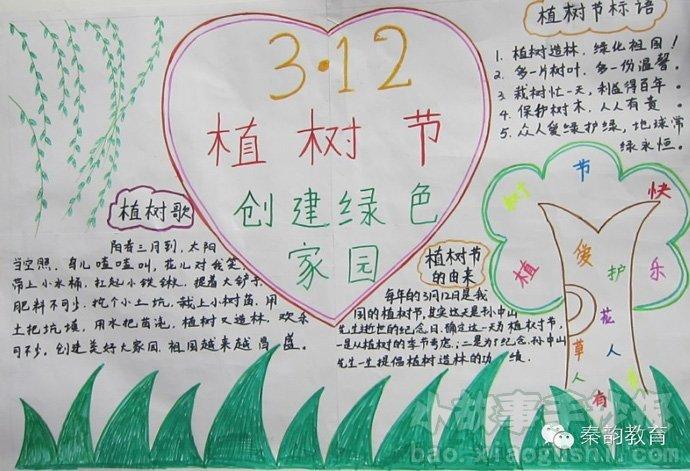 3·12
植树节
创建绿色
家园
植树节标语
1. 植树造林，绿化祖国！
2. 多一片树叶，多一份温馨。
3. 栽树忙一天，利益得百年。
4. 保护树木，人人有责。
5. 众人爱绿护绿，地球常
绿永恒。
植树歌
阳春三月到，太阳
当空照，鸟儿喳喳叫，花儿对我笑
带上小水桶，扛起小铁锹，提着大铲子
肥料不可少，挖个小土坑，栽上小树苗，用
土把坑填，用水把苗浇，植树又造林，欢乐
可不少。创建美好大家园，祖国越来越昌盛。
植树节
的由来
每年的3月12日是我
国的植树节，其实这天是孙中山
先生逝世的纪念日，确定这一天为植树节，
一是从植树的季节考虑；二是为了纪念孙中山
先生一生提倡植树造林的功绩
植树节快乐
爱护花
草人
人有
秦韵教育
小故事手抄报
bao.xiaogushi1.com